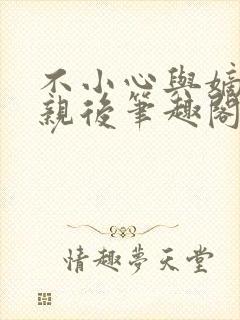 不小心與嫡
親後筆趣閣
情趣夢天堂